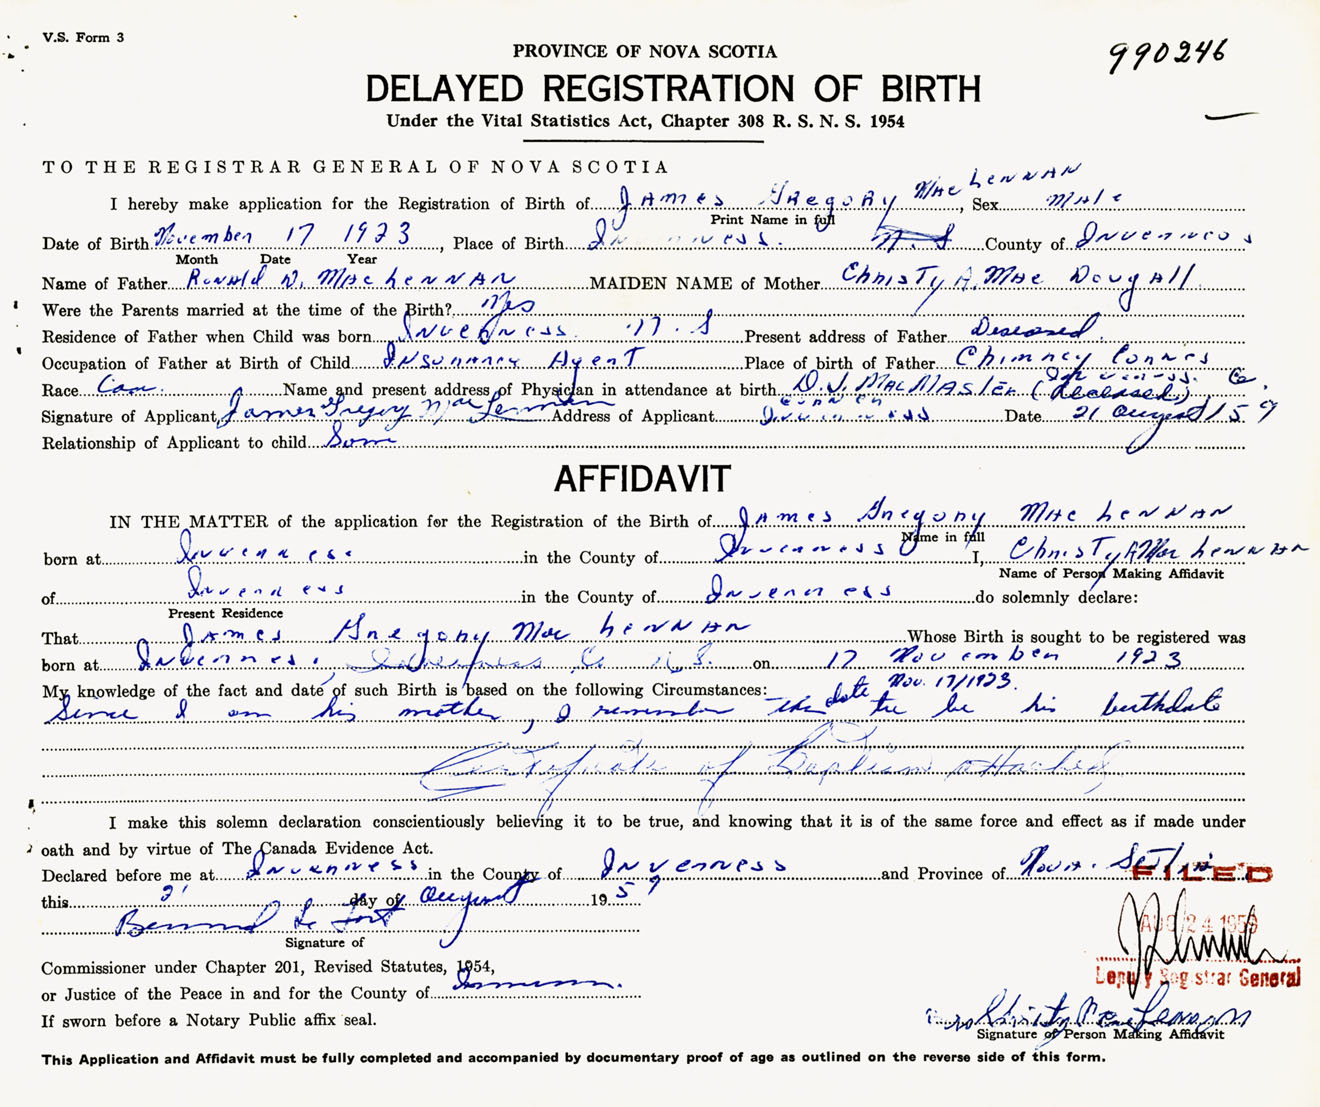 V.S. Form 3
PROVINCE OF NOVA SCOTIA
990246
DELAYED REGISTRATION OF BIRTH
Under the Vital Statistics Act, Chapter 308 R. S. N. S. 1954
TO THE REGISTRAR GENERAL OF NOVA SCOTIA
I hereby make application for the Registration of Birth of James Gregory MacLennan, Sex Male
Print Name in full
Date of Birth November 17 1923, Place of Birth Inverness. N.S County of Inverness
Month Date Year
Name of Father Ronald D. MacLennan MAIDEN NAME of Mother Christy A. MacDougall
Were the Parents married at the time of the Birth? Yes
Residence of Father when Child was born Inverness. N.S Present address of Father Deseased.
Occupation of Father at Birth of Child Insurance Agent Place of birth of Father Chimney Corner
Inverness. Co.
Race Cau. Name and present address of Physician in attendance at birth D.J. MacMaster (deceased)
Signature of Applicant James Gregory MacLennan Address of Applicant Inverness Date 21 August/59
Relationship of Applicant to child Son
AFFIDAVIT
IN THE MATTER of the application for the Registration of the Birth of James Gregory MacLennan
Name in full
born at Inverness in the County of Inverness I, Christy A MacLennan
Name of Person Making Affidavit
of Inverness in the County of Inverness do solemnly declare:
Present Residence
That James Gregory MacLennan Whose Birth is sought to be registered was
born at Inverness, Inverness Co N.S. on 17 November 1923
My knowledge of the fact and date of such Birth is based on the following Circumstances:
Since I am his mother, I remember the date Nov. 17/1923. to be his birthdate
Certificate of Baptism attached
I make this solemn declaration conscientiously believing it to be true, and knowing that it is of the same force and effect as if made under
oath and by virtue of The Canada Evidence Act.
Declared before me at Inverness in the County of Inverness and Province of Nova
FILED
this 21 day of August 1959
AUG 24 1959
Signature of
Deputy Registrar General
Commissioner under Chapter 201, Revised Statutes, 1954,
or Justice of the Peace in and for the County of Inverness.
If sworn before a Notary Public affix seal.
Mrs Christy MacLennan
Signature of Person Making Affidavit
This Application and Affidavit must be fully completed and accompanied by documentary proof of age as outlined on the reverse side of this form.